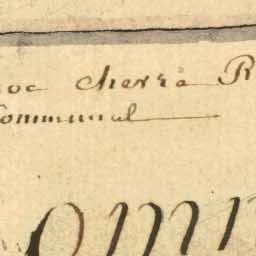 oc cherra R
Communal
omm